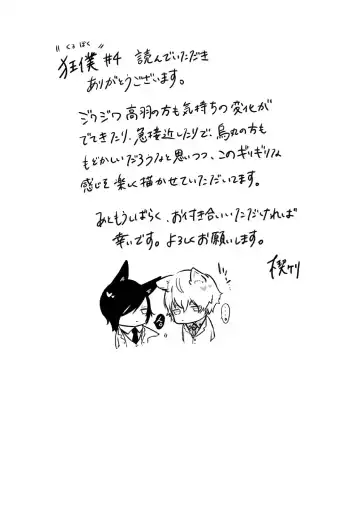 くるぼく
"狂僕" #4 読んでいただき
ありがとうございます。
ジワジワ高羽の方も気持ちの変化が
でてきたり、急接近したりで、烏丸の方も
もどかしいだろうなと思いつつ、このギリギリな
感じを楽しく描かせていただいてます。
あともうしばらく、お付き合いいただければ
幸いです。よろしくお願いします。
楔ケリ